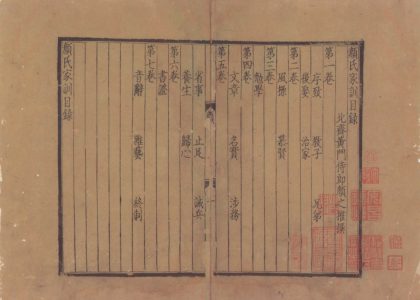 顏氏家訓目錄
北齊黃門侍郎顏之推撰
第一卷
序致 教子 兄弟
後娶 治家
第二卷
風操 慕賢
第三卷
勉學
第四卷
文章 名實 涉務
第五卷
省事 止足 誡兵
養生 歸心
第六卷
書證
第七卷
音辭 雜藝 終制
顏氏家訓目錄